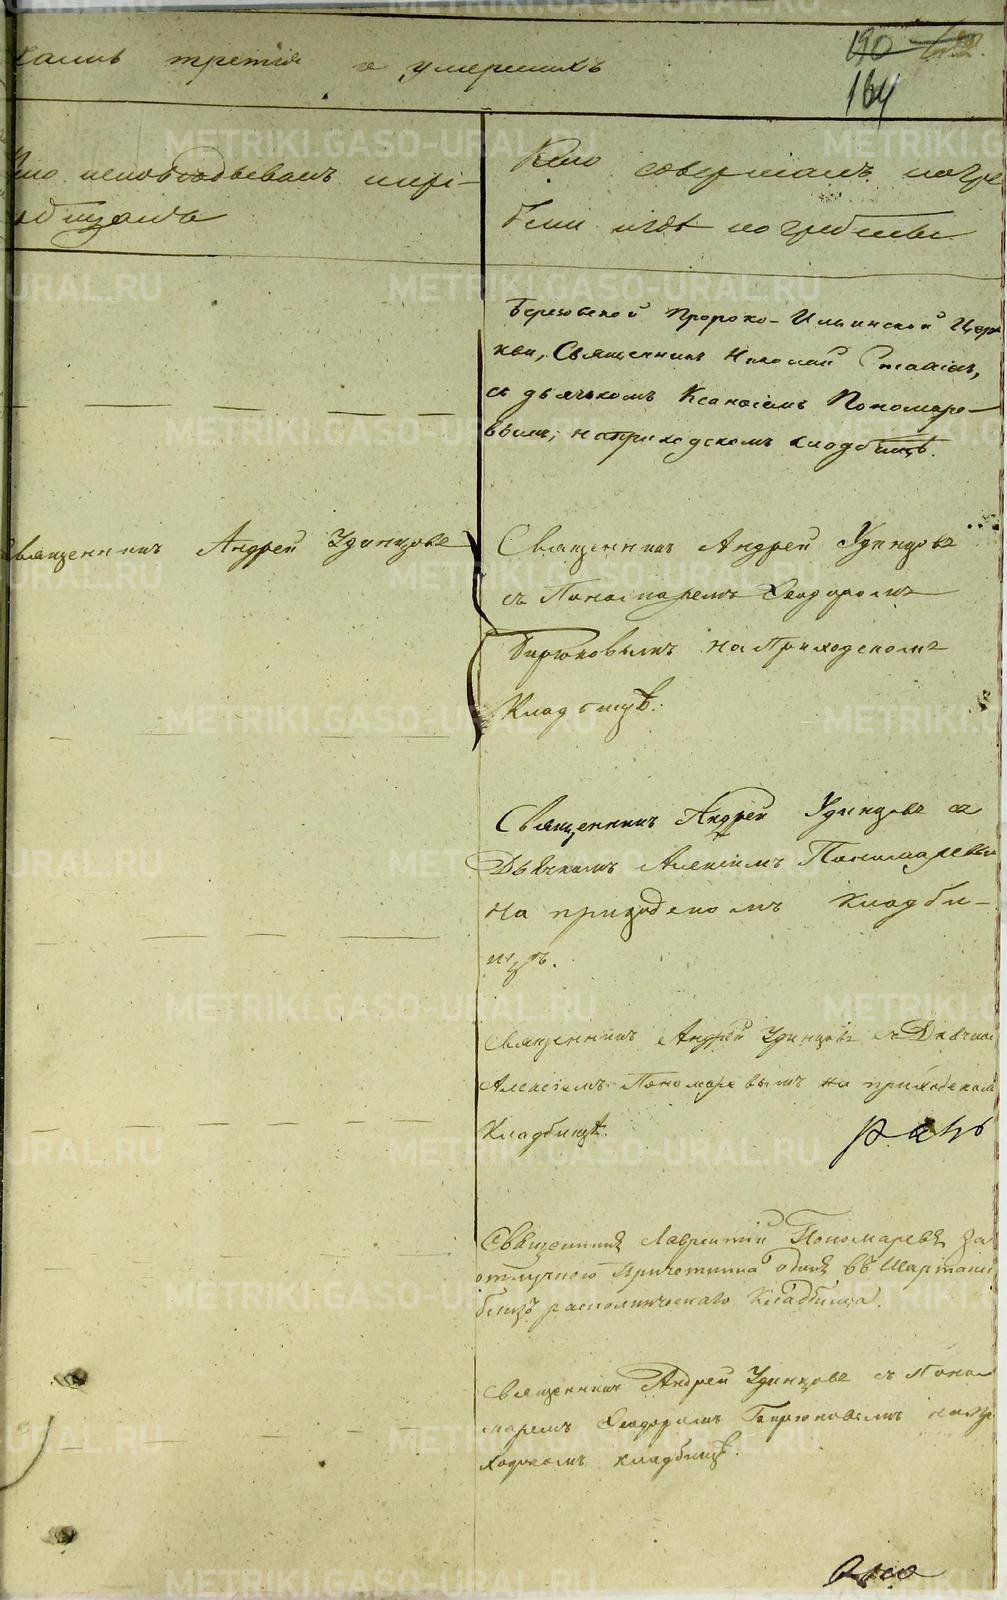 третія о умершихъ
190
164
исповѣдывалъ и прі-
общалъ
Кто совершалъ погре
бенія и гдѣ погребены
Березовской Пророко-Ильинской Цер
кви, Священникъ Николай
съ дьячкомъ Алексіемъ Пономаре-
вымъ, на приходскомъ кладбищѣ.
Священникъ Андрей Удинцовъ
Священникъ Андрей Удинцовъ
съ Пономаремъ Ѳеодоромъ
Бирюковымъ на Приходскомъ
Кладбищѣ.
Священникъ Андрей Удинцовъ съ
Дьячкомъ Алексіемъ Пономаревы
на приходскомъ кладби-
щѣ.
Священникъ Андрей Удинцовъ съ Дьячко
Алексіемъ Пономаревымъ на приходском
Кладбищѣ.
Священникъ Лаврентій Пономаревъ за
отлучкою Причетника одинъ въ Шарташ
близъ раскольническаго Кладбища.
Священникъ Андрей Удинцовъ съ Поно
маремъ Ѳеодоромъ Бирюковымъ на пр
ходскомъ кладбищѣ.
METRIKI.GASO-URAL.RU